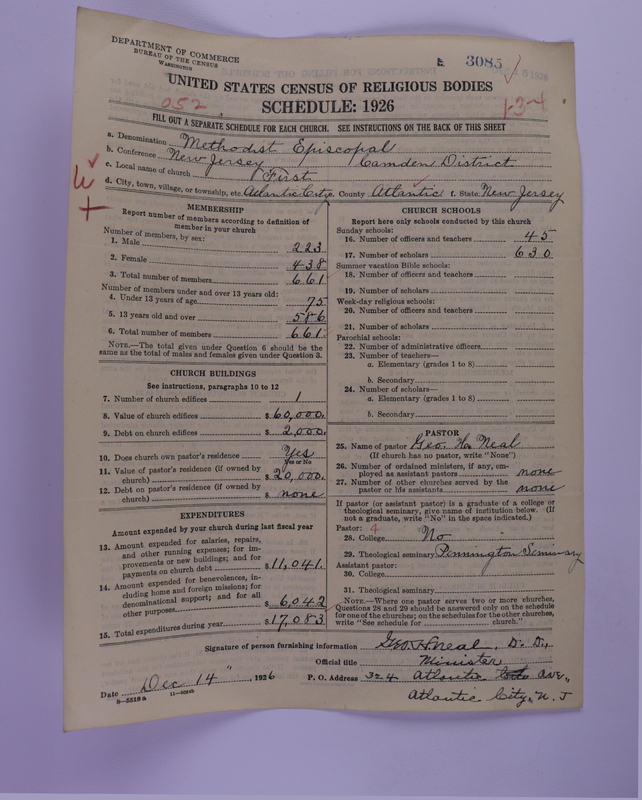 DEPARTMENT OF COMMERCE
BUREAU OF THE CENSUS
WASHINGTON
3085
UNITED STATES CENSUS OF RELIGIOUS BODIES
052
SCHEDULE: 1926
1-3-4
FILL OUT A SEPARATE SCHEDULE FOR EACH CHURCH. SEE INSTRUCTIONS ON THE BACK OF THIS SHEET
a. Denomination Methodist Episcopal
b. Conference New Jersey Camden District
c. Local name of church First
d. City, town, village, or township, etc. Atlantic City e. County Atlantic f. State New Jersey
MEMBERSHIP
Report number of members according to definition of
member in your church
Number of members, by sex:
1. Male 223
2. Female 438
3. Total number of members 661
Number of members under and over 13 years old:
4. Under 13 years of age 75
5. 13 years old and over 586
6. Total number of members 661
NOTE.—The total given under Question 6 should be the
same as the total of males and females given under Question 3.
CHURCH BUILDINGS
See instructions, paragraphs 10 to 12
7. Number of church edifices 1
8. Value of church edifices $ 60,000.
9. Debt on church edifices $ 2,000.
10. Does church own pastor's residence Yes
Yes or No
11. Value of pastor's residence (if owned by
church) $ 20,000.
12. Debt on pastor's residence (if owned by
church) $ none
EXPENDITURES
Amount expended by your church during last fiscal year
13. Amount expended for salaries, repairs,
and other running expenses; for im-
provements or new buildings; and for
payments on church debt $ 11,041.
14. Amount expended for benevolences, in-
cluding home and foreign missions; for
denominational support; and for all
other purposes $ 6,042
15. Total expenditures during year $ 17,083
CHURCH SCHOOLS
Report here only schools conducted by this church
Sunday schools:
16. Number of officers and teachers 45
17. Number of scholars 630
Summer vacation Bible schools:
18. Number of officers and teachers
19. Number of scholars
Week-day religious schools:
20. Number of officers and teachers
21. Number of scholars
Parochial schools:
22. Number of administrative officers
23. Number of teachers—
a. Elementary (grades 1 to 8)
b. Secondary
24. Number of scholars—
a. Elementary (grades 1 to 8)
b. Secondary
PASTOR
25. Name of pastor Geo. H. Neal
(If church has no pastor, write "None")
26. Number of ordained ministers, if any, em-
ployed as assistant pastors none
27. Number of other churches served by the
pastor or his assistants none
If pastor (or assistant pastor) is a graduate of a college or
theological seminary, give name of institution below. (If
not a graduate, write "No" in the space indicated.)
Pastor: 4
28. College No
29. Theological seminary Pennington Seminary
Assistant pastor:
30. College
31. Theological seminary
NOTE.—Where one pastor serves two or more churches,
Questions 28 and 29 should be answered only on the schedule
for one of the churches; on the schedules for the other churches,
write "See schedule for church."
Signature of person furnishing information Geo. H. Neal, D. D.,
Official title Minister
Date Dec 14", 1926 P. O. Address 324 Atlantic Ave.,
Atlantic City, N. J
8—5518a